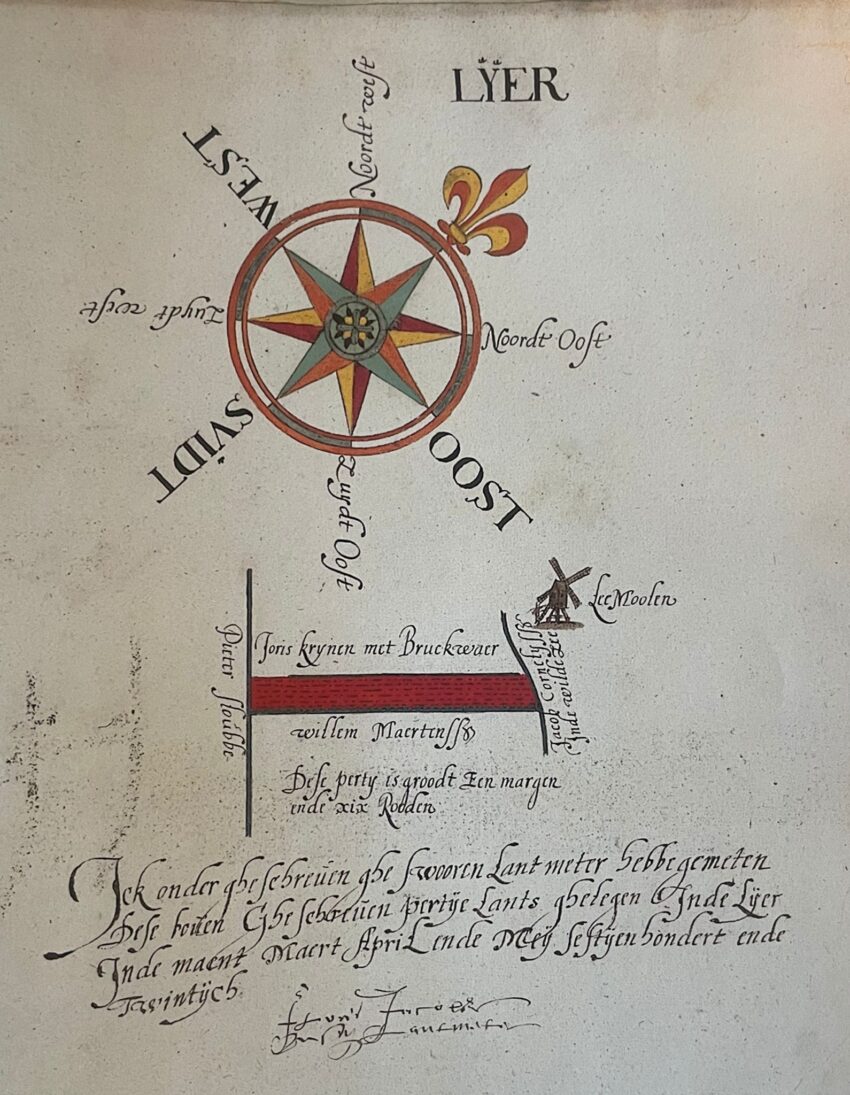 LŸER
Noordt west
WEST
Zuydt west
Noordt Oost
SVIDT
OOST
Zuydt Oost
Lee Moolen
Pieter sloubbe
Joris krynen met Bruckwaer
Jacob Cornelyssz
Inde wilde Lee
willem Maertenssz
Dese perty is groodt Een margen
ende xix Rooden
Ick onder ghescbreuen ghe swooren Lant meter hebbe gemeten
Dese bouen Ghescbreuen pertÿe Lants ghelegen Inde Lÿer
Inde maent Maert ApriL ende Meÿ sestÿen hondert ende
Twintÿch
Jacobs
Lantmeter